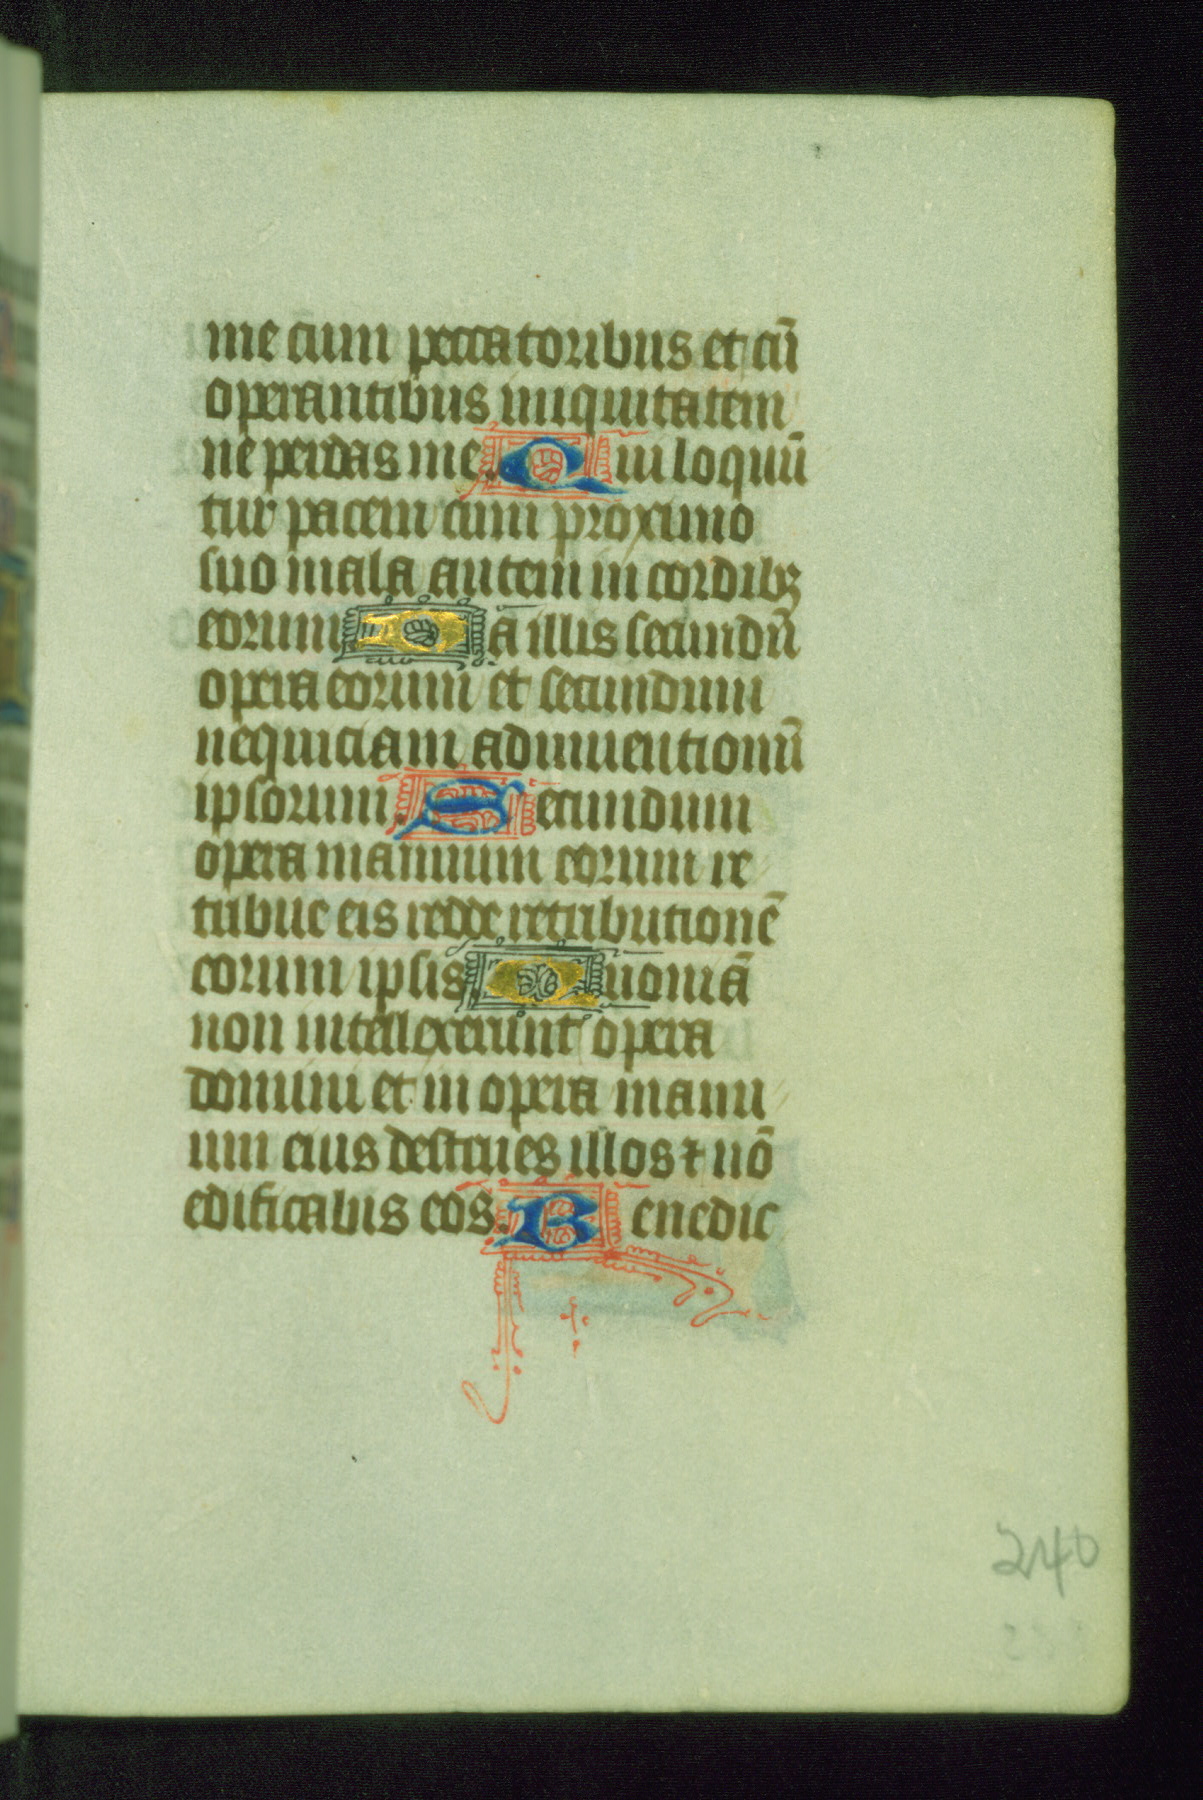 me cum peccatoribus et cū
operantibus iniquitatem
ne perdas me. Qui loquū
tur pacem cum proximo
suo mala autem in cordibꝫ
eorum. Da illis secundū
opera eorum et secundum
nequiciam adinuentionū
ipsorum. Secundum
opera manuum eorum re
tribue eis redde retributionē
eorum ipsis. Quoniā
non intellexerunt opera
domini et in opera manu
um eius destrues illos ⁊ nō
edificabis eos. Benedic
240